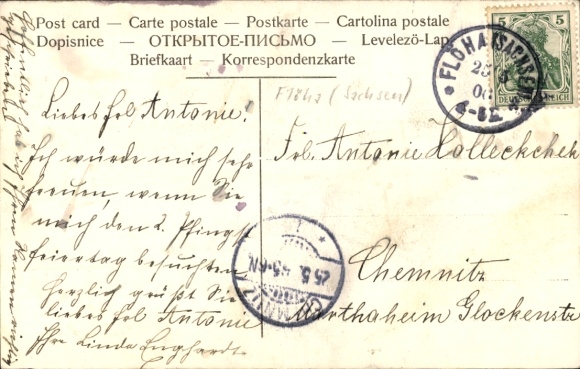 Post card — Carte postale — Postkarte — Cartolina postale
Dopisnice — ОТКРЫТОЕ-ПИСЬМО — Levelező-Lap
Briefkaart — Korrespondenzkarte
5 5
DEUTSCHES REICH
FLÖHA (SACHSEN)
Flöha (Sachsen)
Liebes Frl. Antonie!
Ich würde mich sehr
freuen, wenn Sie
mich den 2. Pfingst
feiertag besuchten
Herzlich grüßt Sie
liebes Frl. Antonie
Ihre Linda Enghardt
Frl. Antonie Holleckchek
Chemnitz
Marthaheim Glockenstr
CHEMNITZ
25.5.